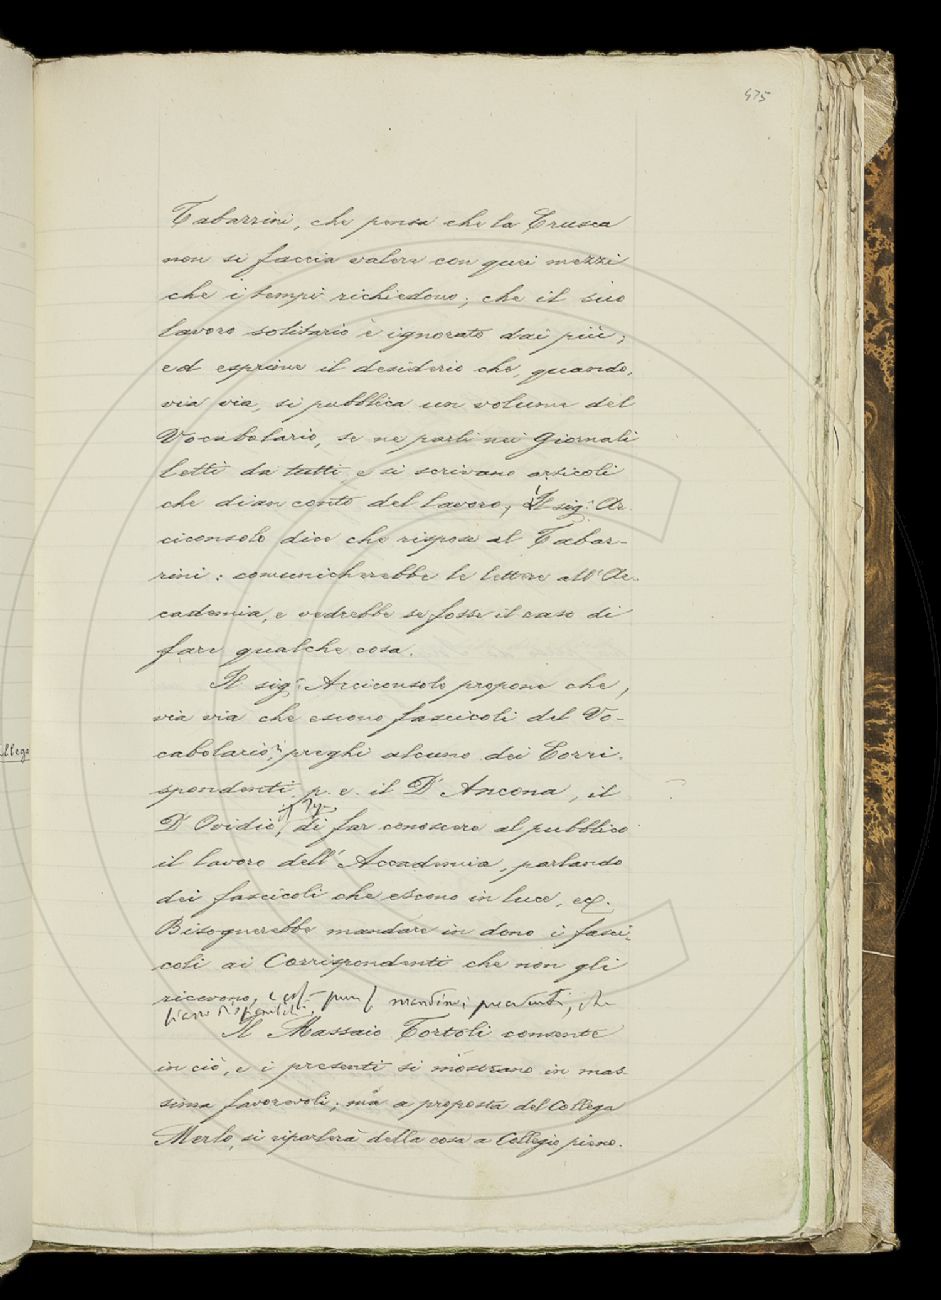 475
Tabarrini, che pensa che la Crusca
non si faccia valere con quei mezzi
che i tempi richiedono; che il suo
lavoro solitario è ignorato dai più;
ed esprime il desiderio che, quando,
via via, si pubblica un volume del
Vocabolario, se ne parli nei Giornali
letti da tutti e si scrivano articoli
che dian conto del lavoro; Il sig.r Ar
ciconsolo dice che rispose al Tabar-
rini: comunicherebbe le lettere all'Ac-
cademia, e vedrebbe se fosse il caso di
fare qualche cosa.
Il sig.r Arciconsolo propone che,
via via che escono fascicoli del Vo-
cabolario, si preghi alcuno dei Corri-
spondenti p. e. il D'Ancona, il
D'Ovidio, di far conoscere al pubblico
il lavoro dell'Accademia, parlando
dei fascicoli che escono in luce, ec.
Bisognerebbe mandare in dono i fasci-
coli ai Corrispondenti che non gli
ricevono, e pure mandare i precedenti, che
siano disponibili.
Il Massaio Tortoli consente
in ciò, e i presenti si mostrano in mas
sima favorevoli; ma a proposta del Collega
Merlo, si riporterà della cosa a Collegio pieno.
llega